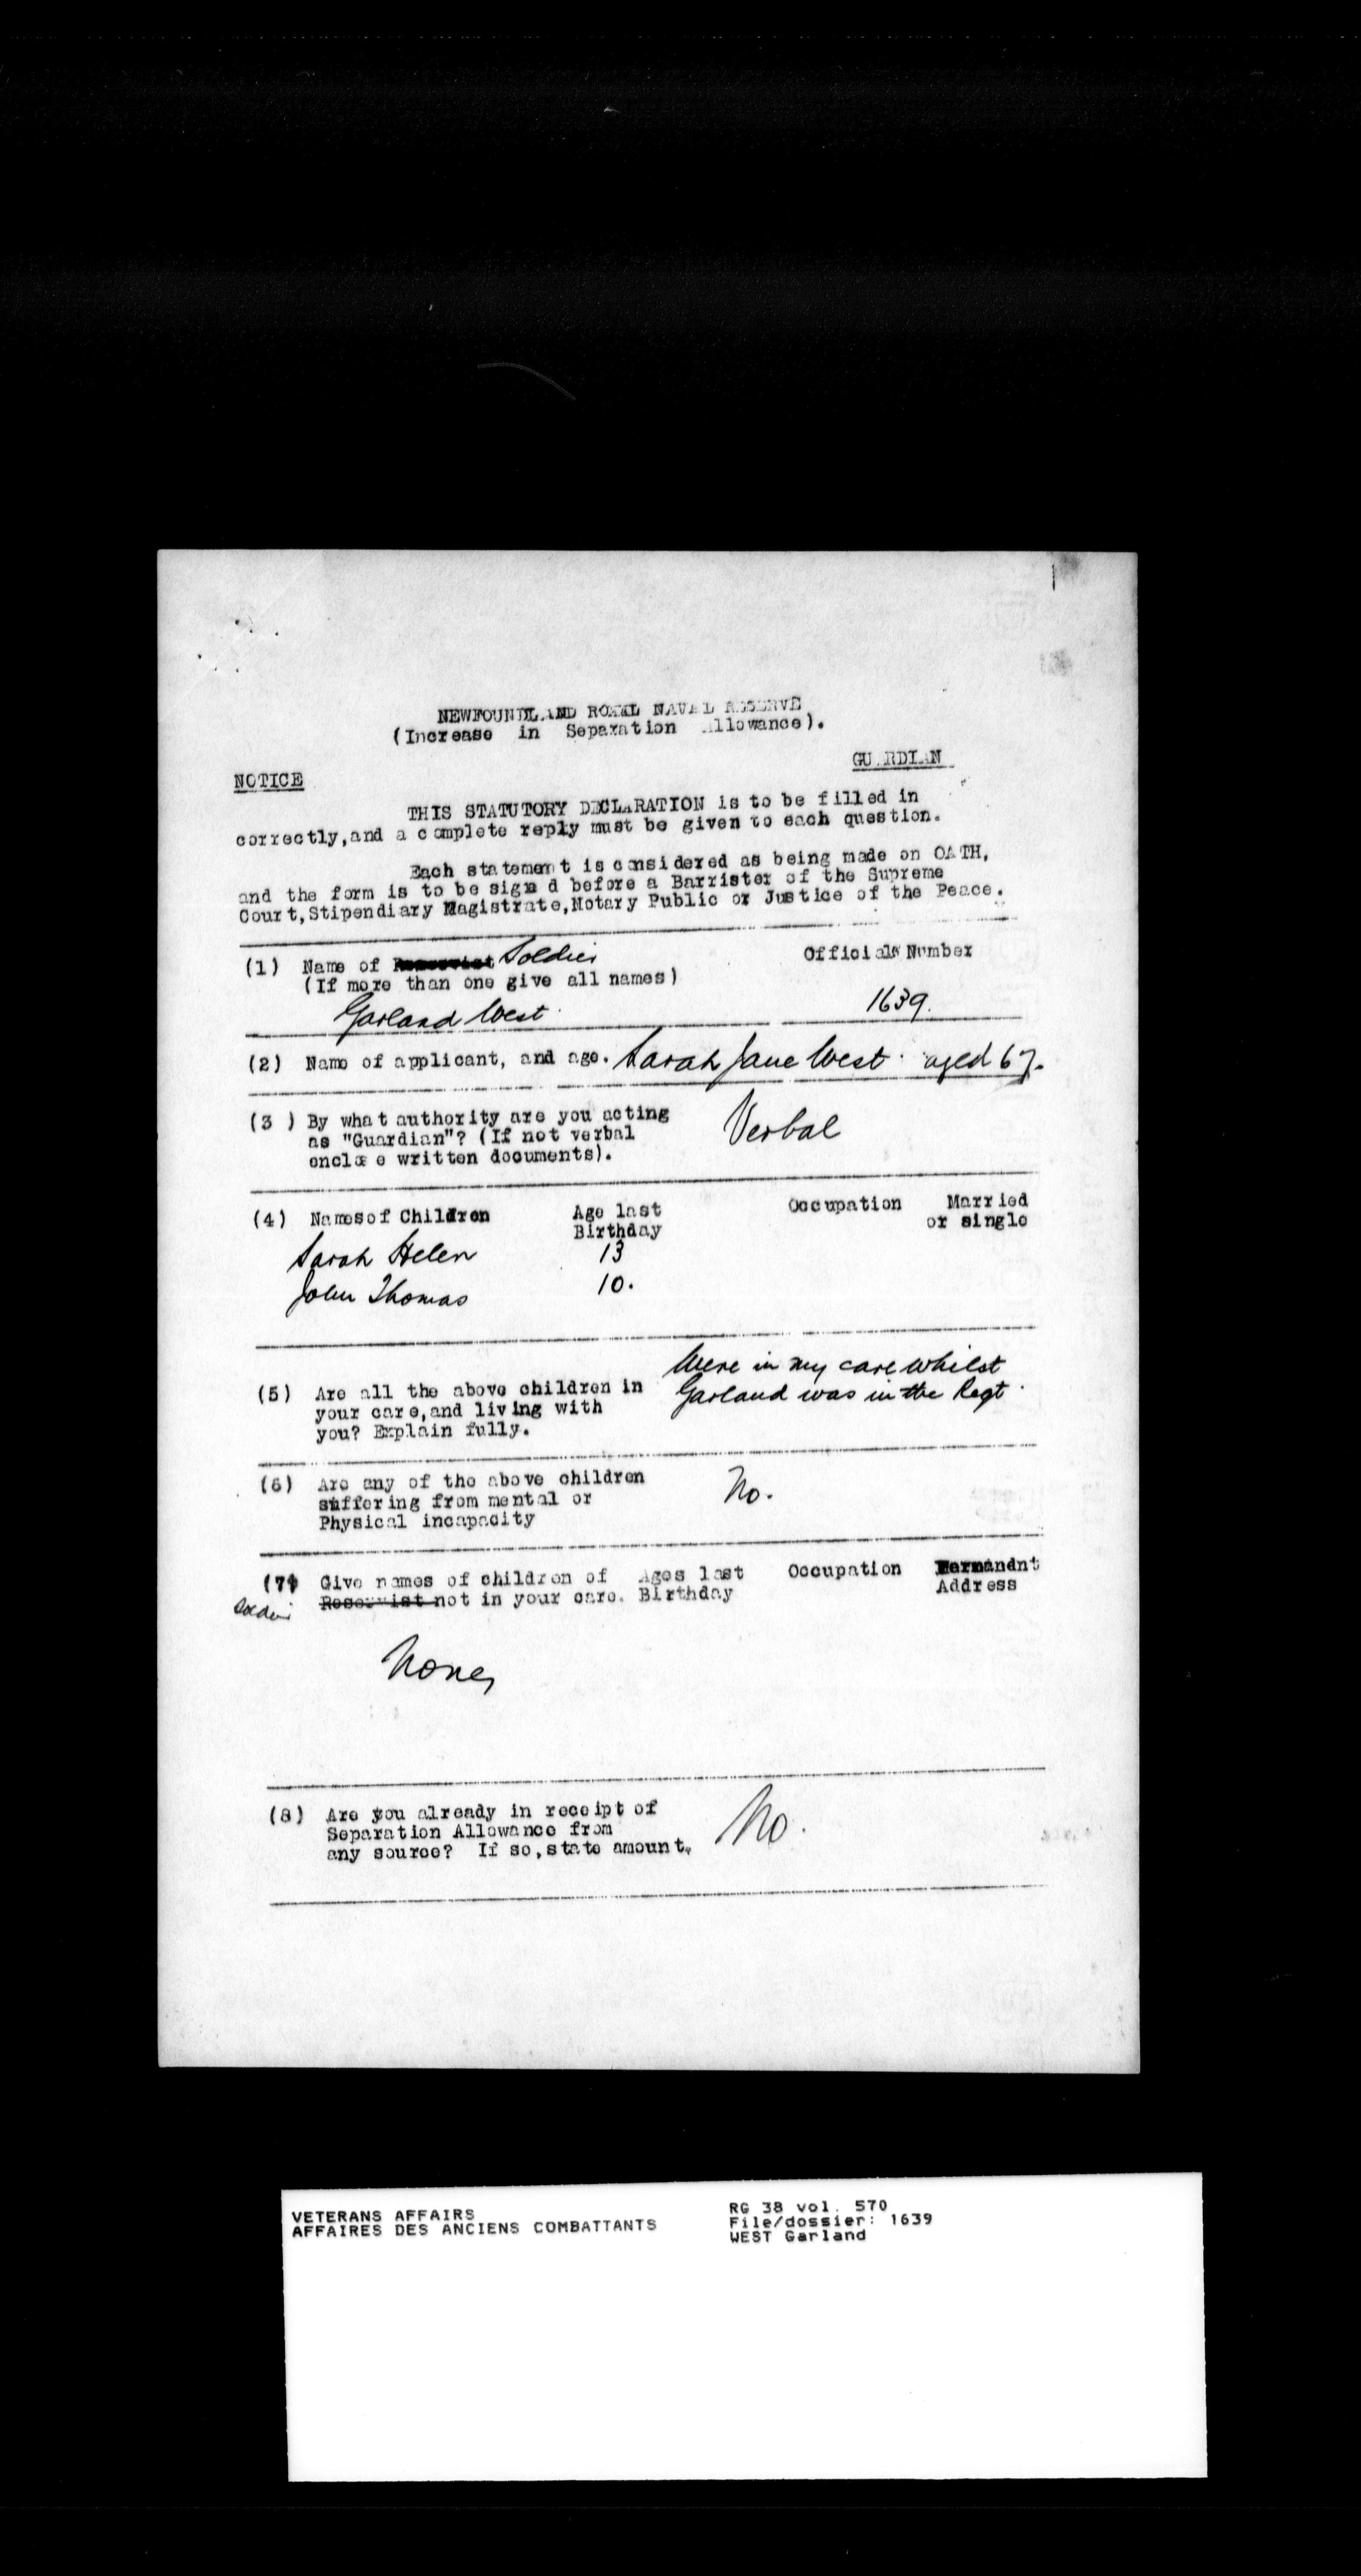 NEWFOUNDLAND ROYAL NAVAL RESERVE
(Increase in Separation Allowance).
GUARDIAN
NOTICE
THIS STATUTORY DECLARATION is to be filled in
correctly,and a complete reply must be given to each question.
Each statement is considered as being made on OATH,
and the form is to be sign d before a Barrister of the Supreme
Court,Stipendiary Magistrate,Notary Public or Justice of the Peace.
(1) Name of Reservist Soldier Officials Number
(If more than one give all names)
Garland West 1639.
(2) Name of applicant, and age. Sarah Jane West aged 67.
(3 ) By what authority are you acting Verbal
as "Guardian"? (If not verbal
enclose written documents).
(4) Names of Children Age last Occupation Married
Birthday or single
Sarah Helen 13
John Thomas 10.
Were in my care whilst
(5) Are all the above children in Garland was in the Regt.
your care,and living with
you? Explain fully.
(6) Are any of the above children No.
suffering from mental or
Physical incapacity
(7) Give names of children of Ages last Occupation Permandnt
Soldier Reservist not in your care. Birthday Address
None
(8) Are you already in receipt of No.
Separation Allowance from
any source? If so,state amount.
VETERANS AFFAIRS RG 38 vol. 570
AFFAIRES DES ANCIENS COMBATTANTS File/dossier: 1639
WEST Garland